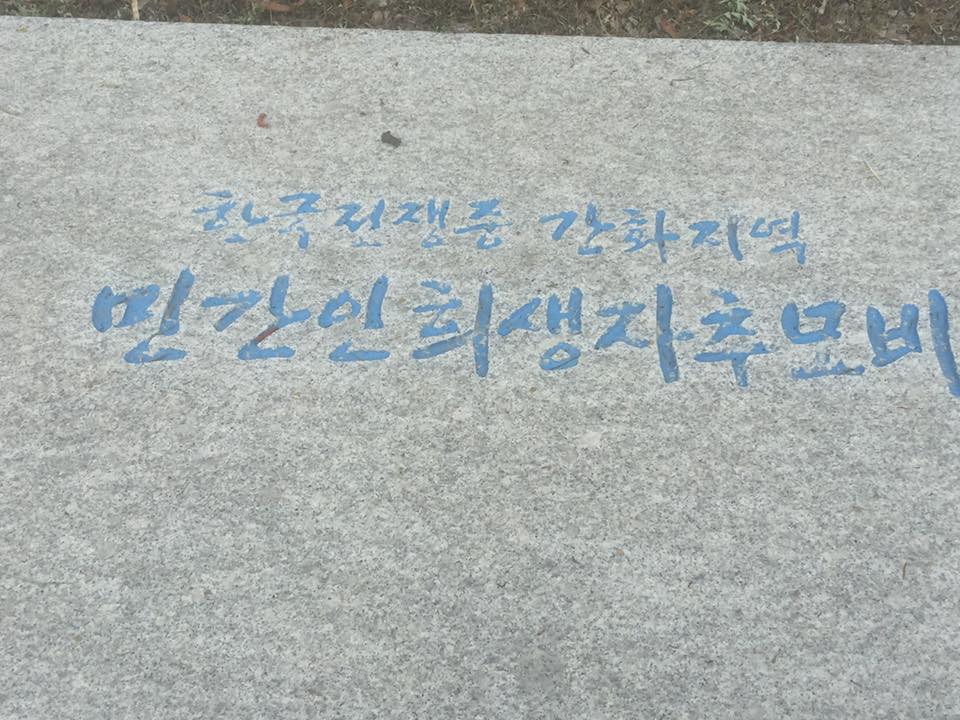 한국전쟁중 간화지역
민간인희생자추모비